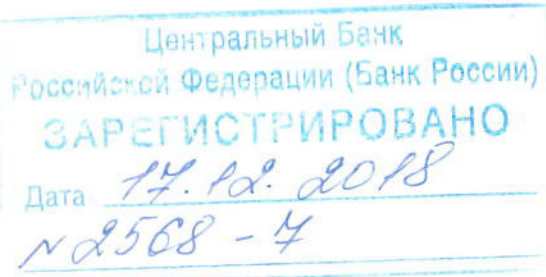 Центральный Банк
Российской Федерации (Банк России)
ЗАРЕГИСТРИРОВАНО
Дата 17.12.2018
N 2568-7